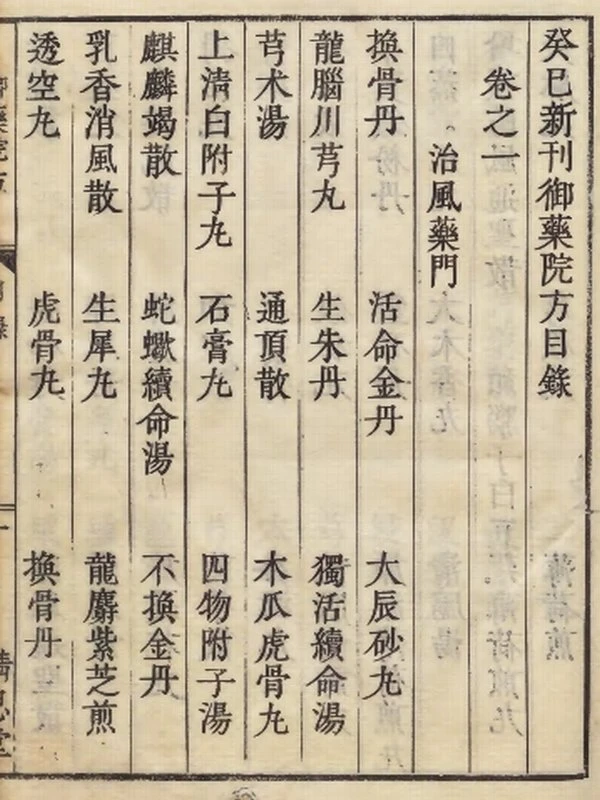 癸巳新刊御藥院方目錄
卷之一
治風藥門
換骨丹　活命金丹　大辰砂丸
龍腦川芎丸　生朱丹　獨活續命湯
芎朮湯　通頂散　木瓜虎骨丸
上淸白附子丸　石膏丸　四物附子湯
麒麟竭散　蛇蠍續命湯　不換金丹
乳香消風散　生犀丸　龍麝紫芝煎
透空丸　虎骨丸　換骨丹